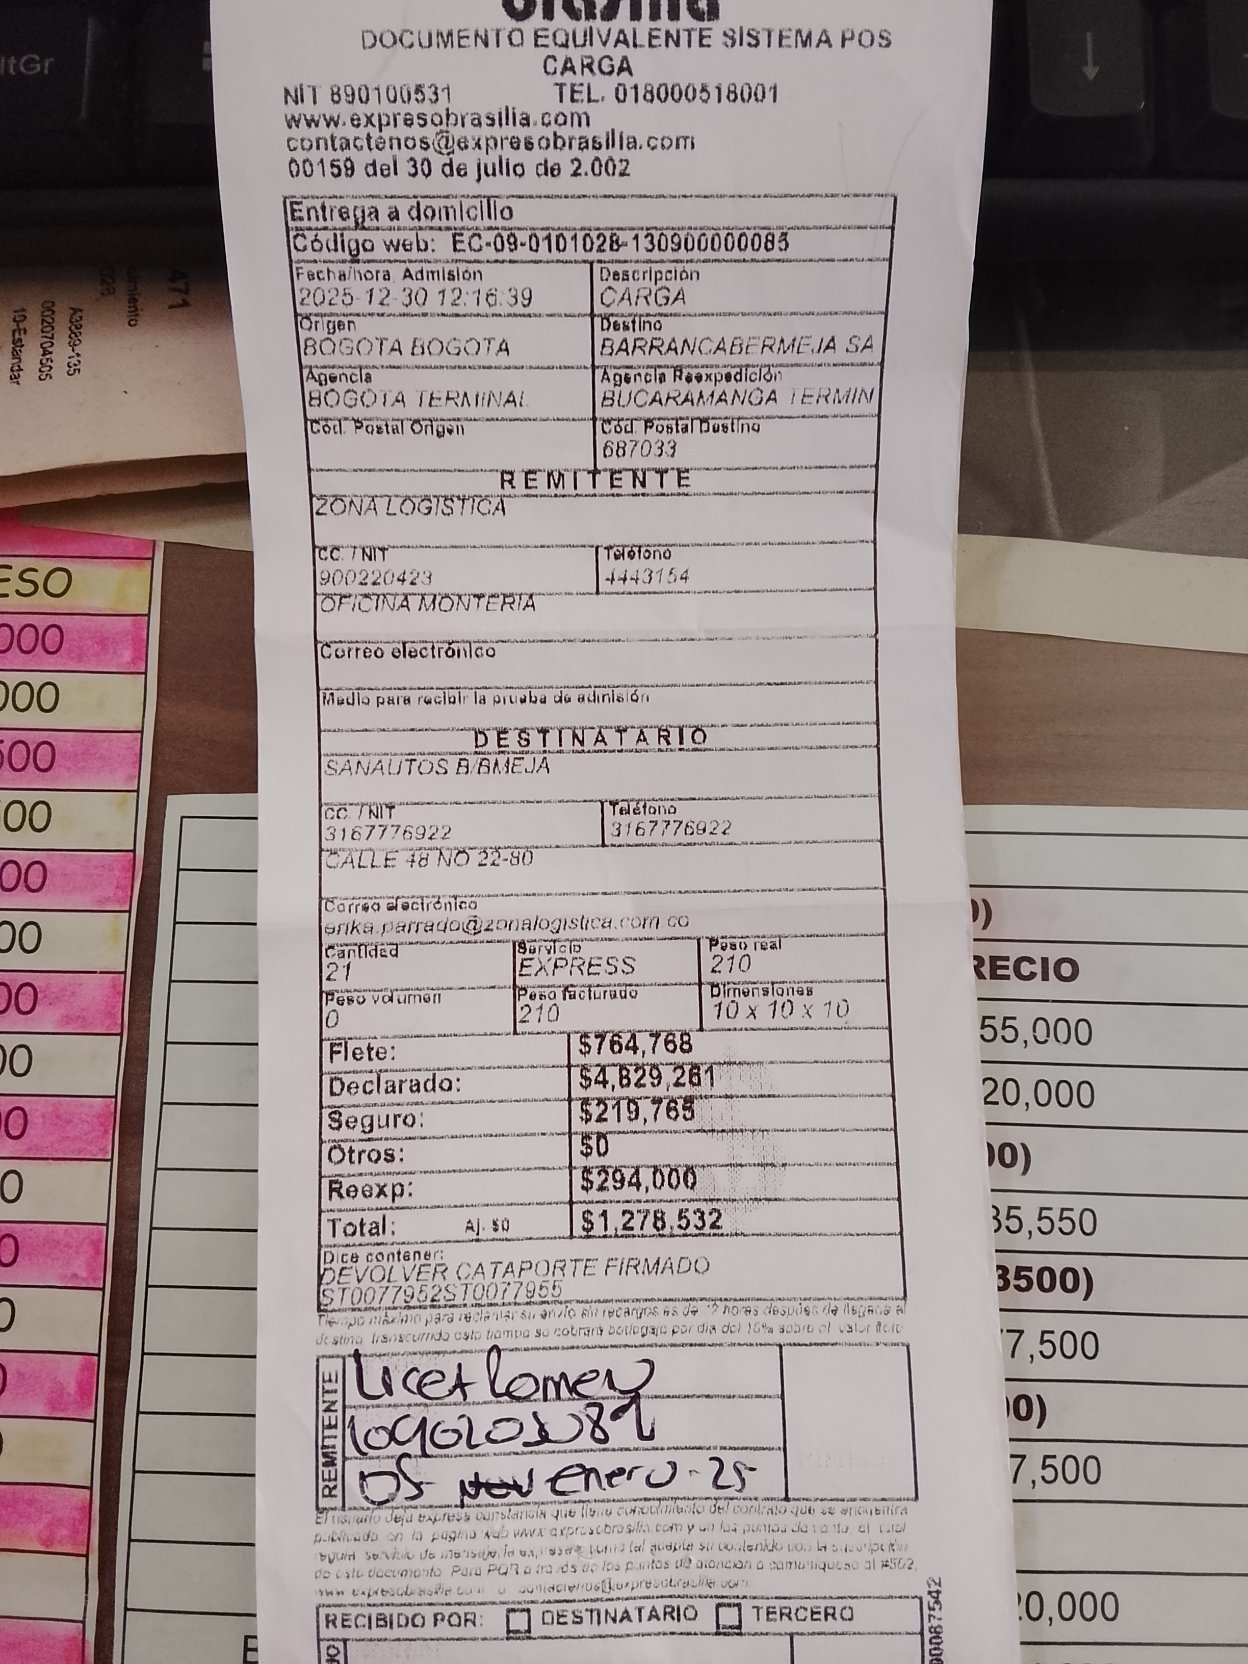 ltGr
DOCUMENTO EQUIVALENTE SISTEMA POS
CARGA
NIT 890100531 TEL. 018000518001
www.expresobrasilia.com
contactenos@expresobrasilia.com
00159 del 30 de julio de 2.002
Entrega a domicilio
Código web: EC-09-0101028-130900000085
Fecha/hora Admisión Descripción
2025-12-30 12:16:39 CARGA
Origen Destino
BOGOTA BOGOTA BARRANCABERMEJA SA
Agencia Agencia Reexpedición
BOGOTA TERMINAL BUCARAMANGA TERMIN
Cód. Postal Origen Cód. Postal Destino
687033
REMITENTE
ZONA LOGISTICA
CC. / NIT Teléfono
900220423 4443154
OFICINA MONTERIA
Correo electrónico
Medio para recibir la prueba de admisión
DESTINATARIO
SANAUTOS B/BMEJA
CC. / NIT Teléfono
3167776922 3167776922
CALLE 48 NO 22-80
Correo electrónico
erika.parrado@zonalogistica.com.co
Cantidad Servicio Peso real
21 EXPRESS 210
Peso volumen Peso facturado Dimensiones
0 210 10 x 10 x 10
Flete: $764,768
Declarado: $4,829,261
Seguro: $219,765
Otros: $0
Reexp: $294,000
Total: Aj. $0 $1,278,532
Dice contener:
DEVOLVER CATAPORTE FIRMADO
ST0077952ST0077955
Tiempo máximo para reclamar su envío sin recargos es de 12 horas después de llegada al
destino, transcurrido este tiempo se cobrará bodegaje por día del 10% sobre el valor flete
REMITENTE
05 enero-25
El usuario deja expresa constancia que tiene conocimiento del contrato que se encuentra
publicado en la página web www.expresobrasilia.com y en los puntos de venta, el cual
regula servicio de mensajería expresa, punto tal acepta su contenido con la suscripción
de este documento. Para PQR a través de los puntos de atención o comuníquese al #502,
www.expresobrasilia.com o contactenos@expresobrasilia.com
RECIBIDO POR: DESTINATARIO TERCERO
00087542
471
A3989-135
0020704505
10-Estandar
ESO
000
000
500
00
00
00
00
00
00
0
0
RECIO
55,000
20,000
00)
35,550
3500)
7,500
00)
7,500
20,000